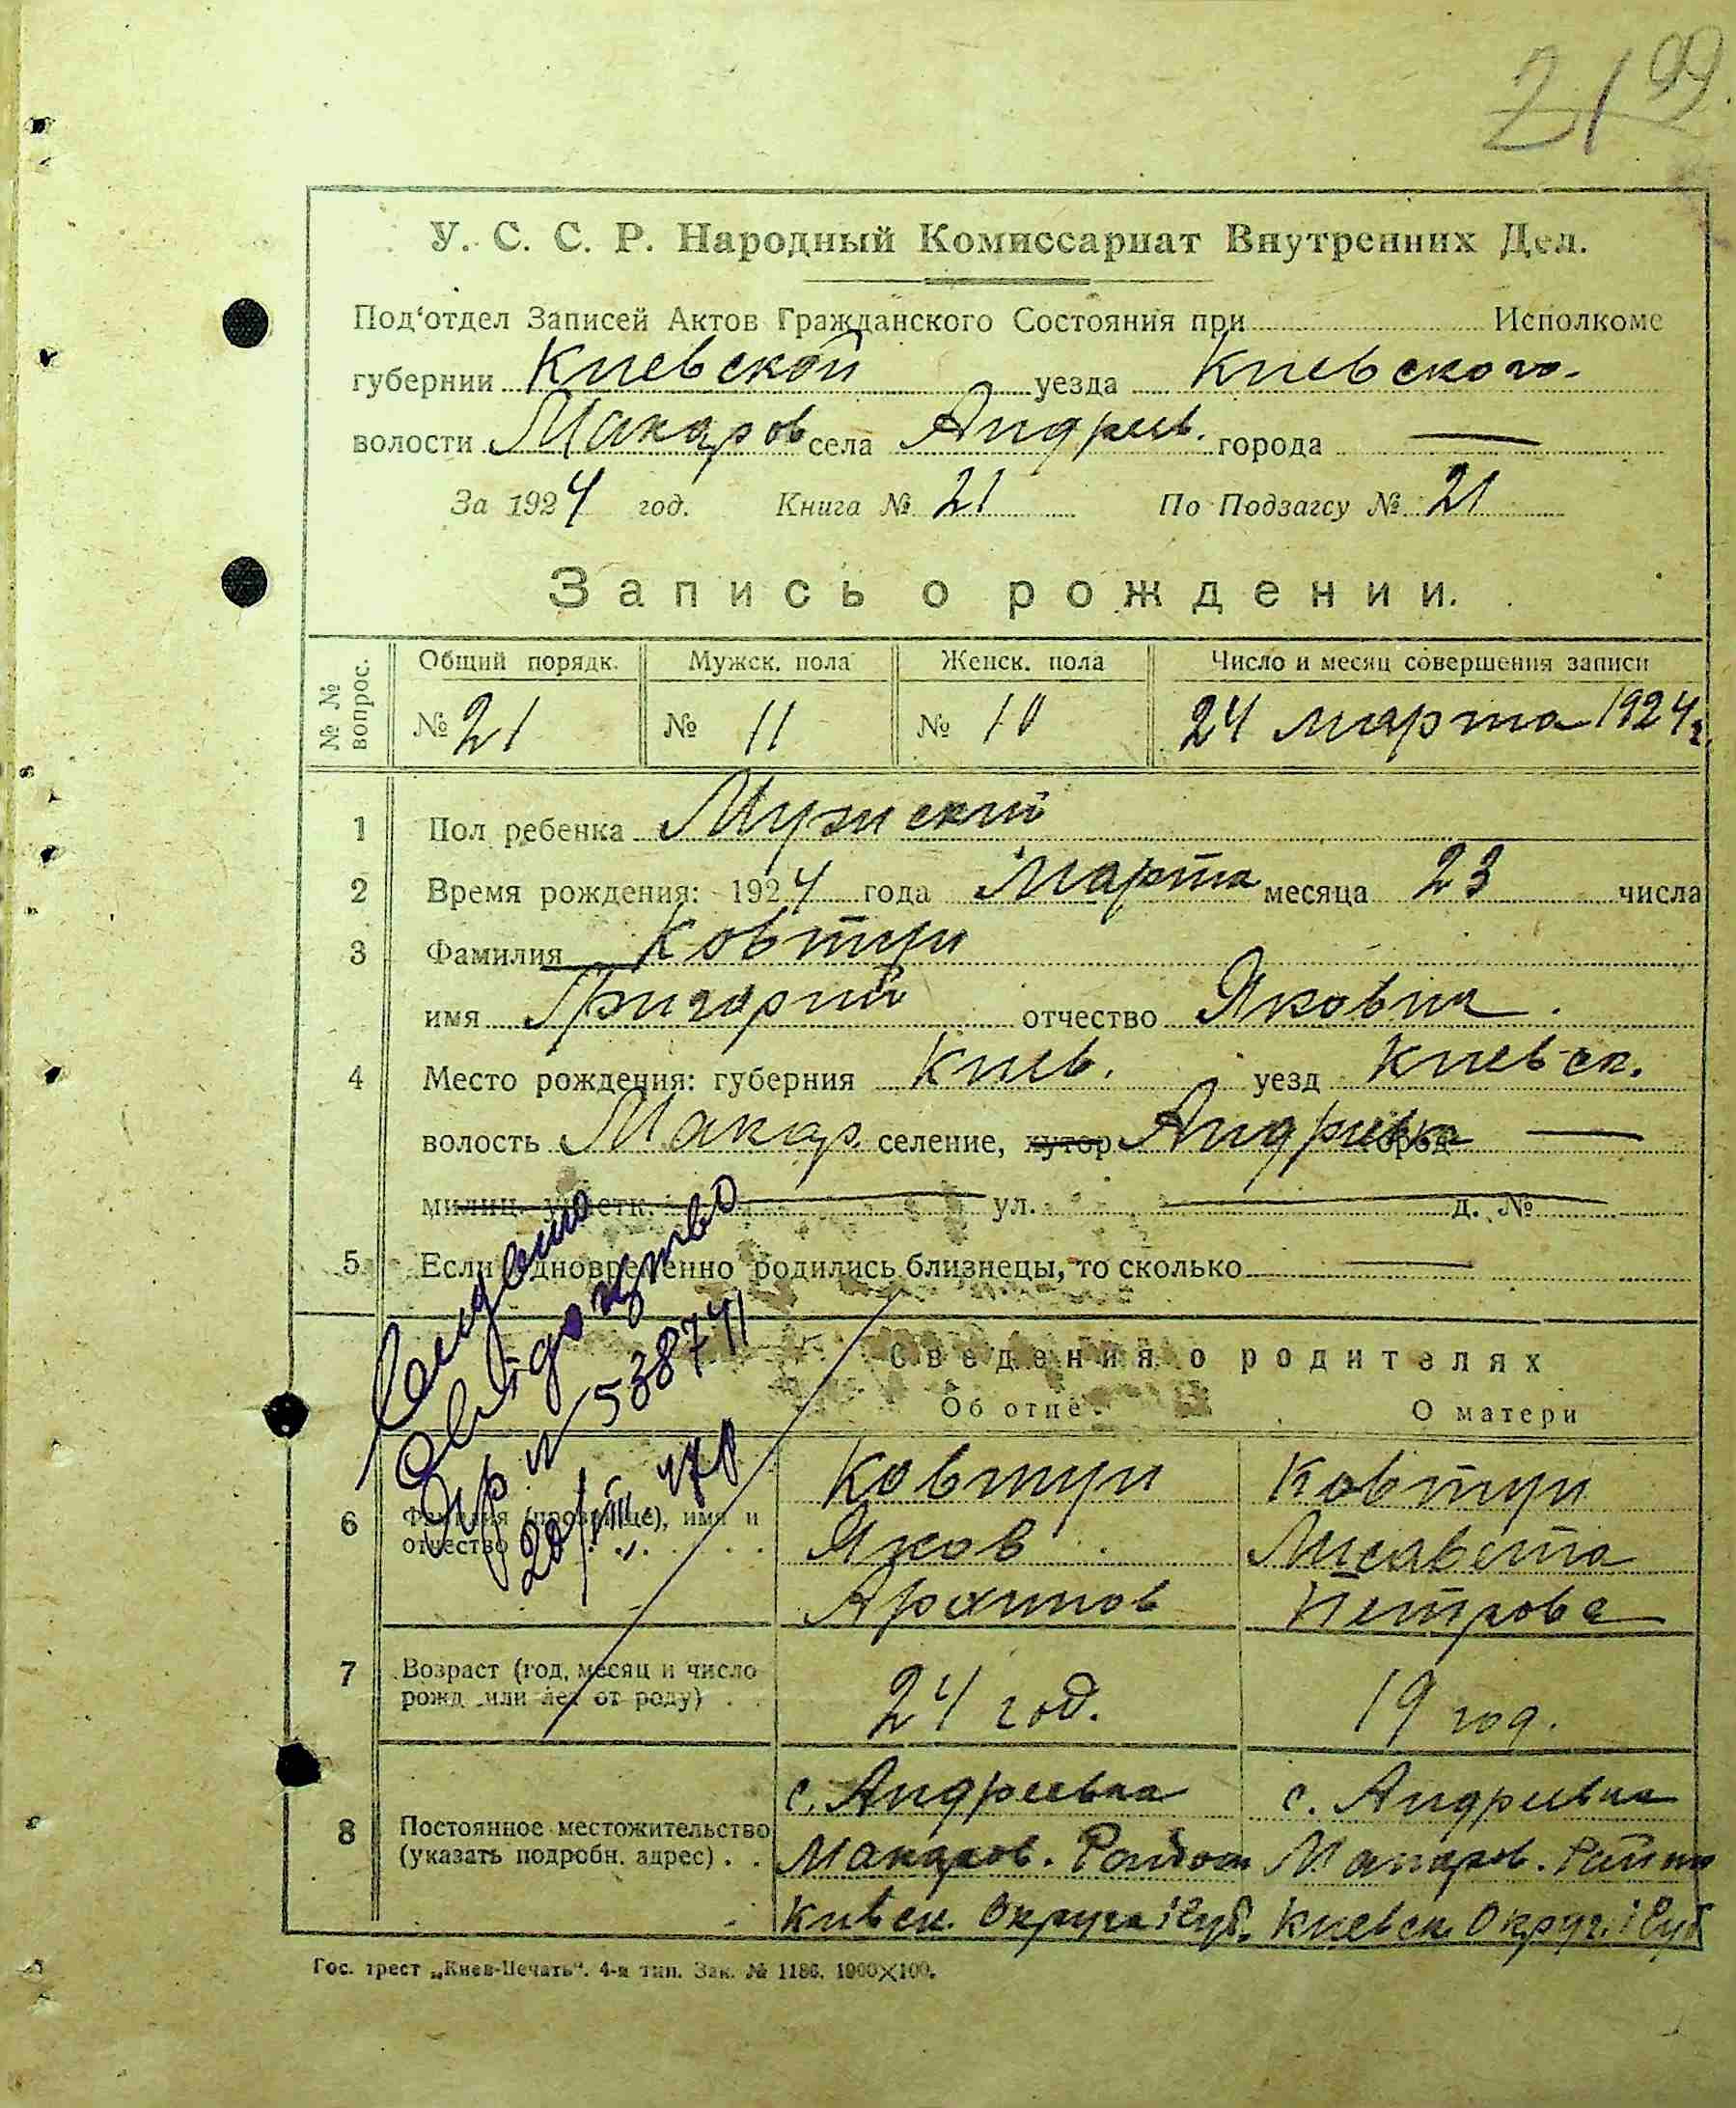 21 99
У. С. С. Р. Народный Комиссариат Внутренних Дел.
Под'отдел Записей Актов Гражданского Состояния при Исполкоме
губернии Киевской уезда Киевского
волости Макаров села Андриев. города —
За 1924 год. Книга № 21 По Подзагсу № 21
Запись о рождении.
№ № вопрос. Общий порядк. Мужск. пола Женск. пола Число и месяц совершения записи
№ 21 № 11 № 10 24 марта 1924 г.
1 Пол ребенка Мужский
2 Время рождения: 1924 года Марта месяца 23 числа
3 Фамилия Ковтун
имя Григорий отчество Якович
4 Место рождения: губерния Киев. уезд Киевск.
волость Макар. селение, хутор Андриевка город —
милиц. участк. — ул. — д. №
5 Если одновременно родились близнецы, то сколько —
Сведения о родителях
Об отце О матери
свідоцтво
№ 538741
20/VIII 47р
6 Фамилия (прозвище), имя и отчество
Ковтун Ковтун
Яков Лисавета
Архипов Петрова
7 Возраст (год, месяц и число рожд. или лет от роду)
24 год. 19 год.
8 Постоянное местожительство (указать подробн. адрес)
с. Андреевка с. Андриевка
Макаров. Района Макаров. Района
Киевск. Округа і Губ. Киевск. Округ. і Губ
Гос. трест „Киев-Печать“. 4-я тип. Зак. № 1186. 1000×100.